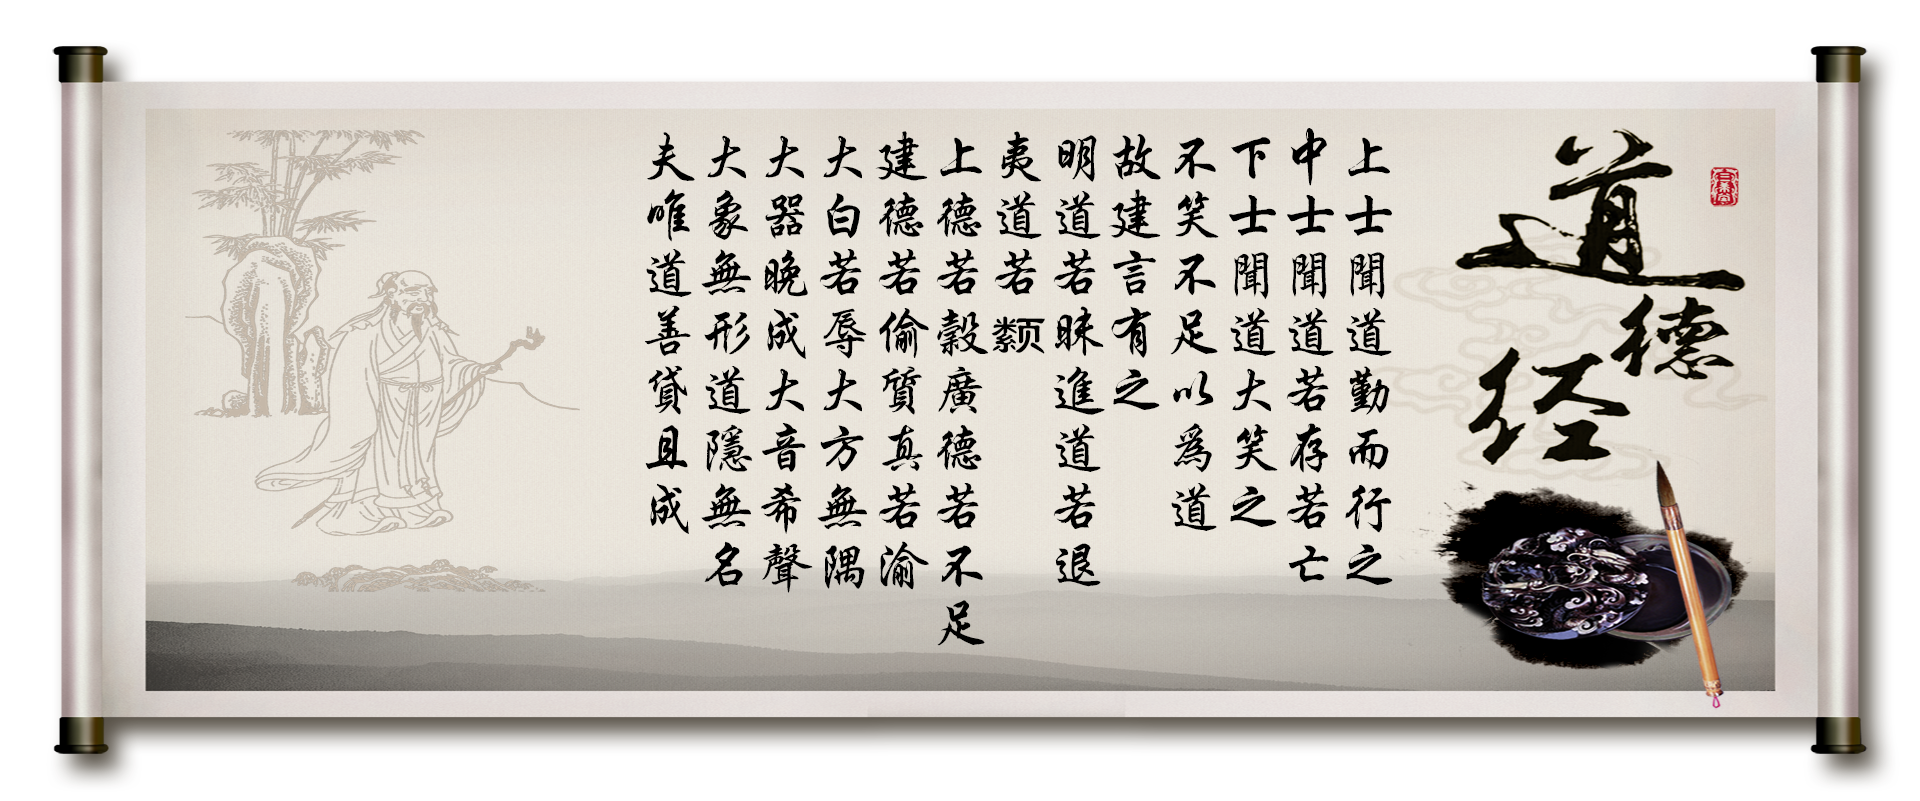 道德经
上士聞道勤而行之
中士聞道若存若亡
下士聞道大笑之
不笑不足以爲道
故建言有之
明道若昧進道若退
夷道若颣
上德若穀廣德若不足
建德若偷質真若渝
大白若辱大方無隅
大器晚成大音希聲
大象無形道隱無名
夫唯道善貸且成